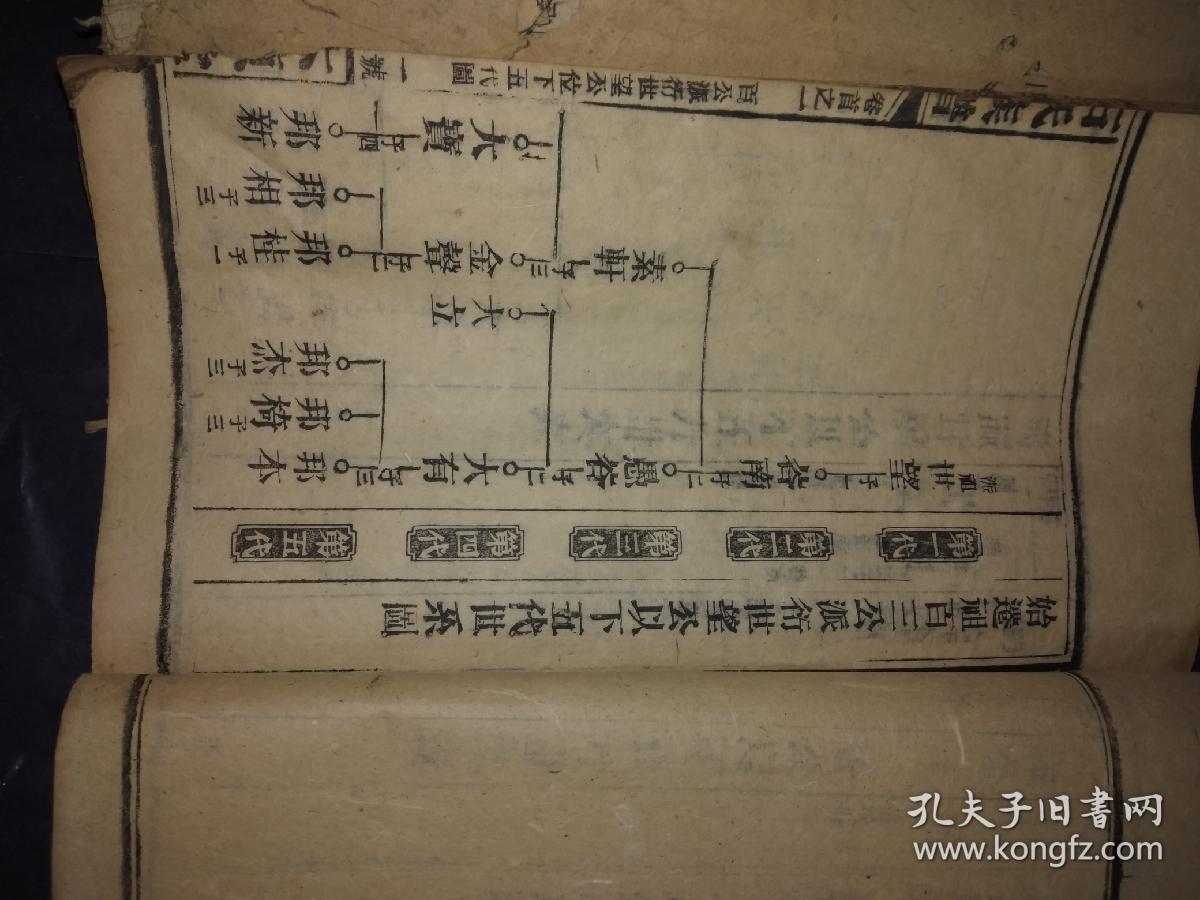 始遷祖百三公派衍世望公以下五代世系圖
第一代
第二代
第三代
第四代
第五代
派祖
世望 子一
南 子二
愚谷 子二
大有 子三
邦本
邦椅 子三
邦杰 子三
大立
素軒 子三
金聲
邦桂 子一
邦相 子三
大寶 子四
邦新
氏族譜
卷首之一
百三公派衍世望公位下五代圖
一號
孔夫子旧书网
www.kongfz.com